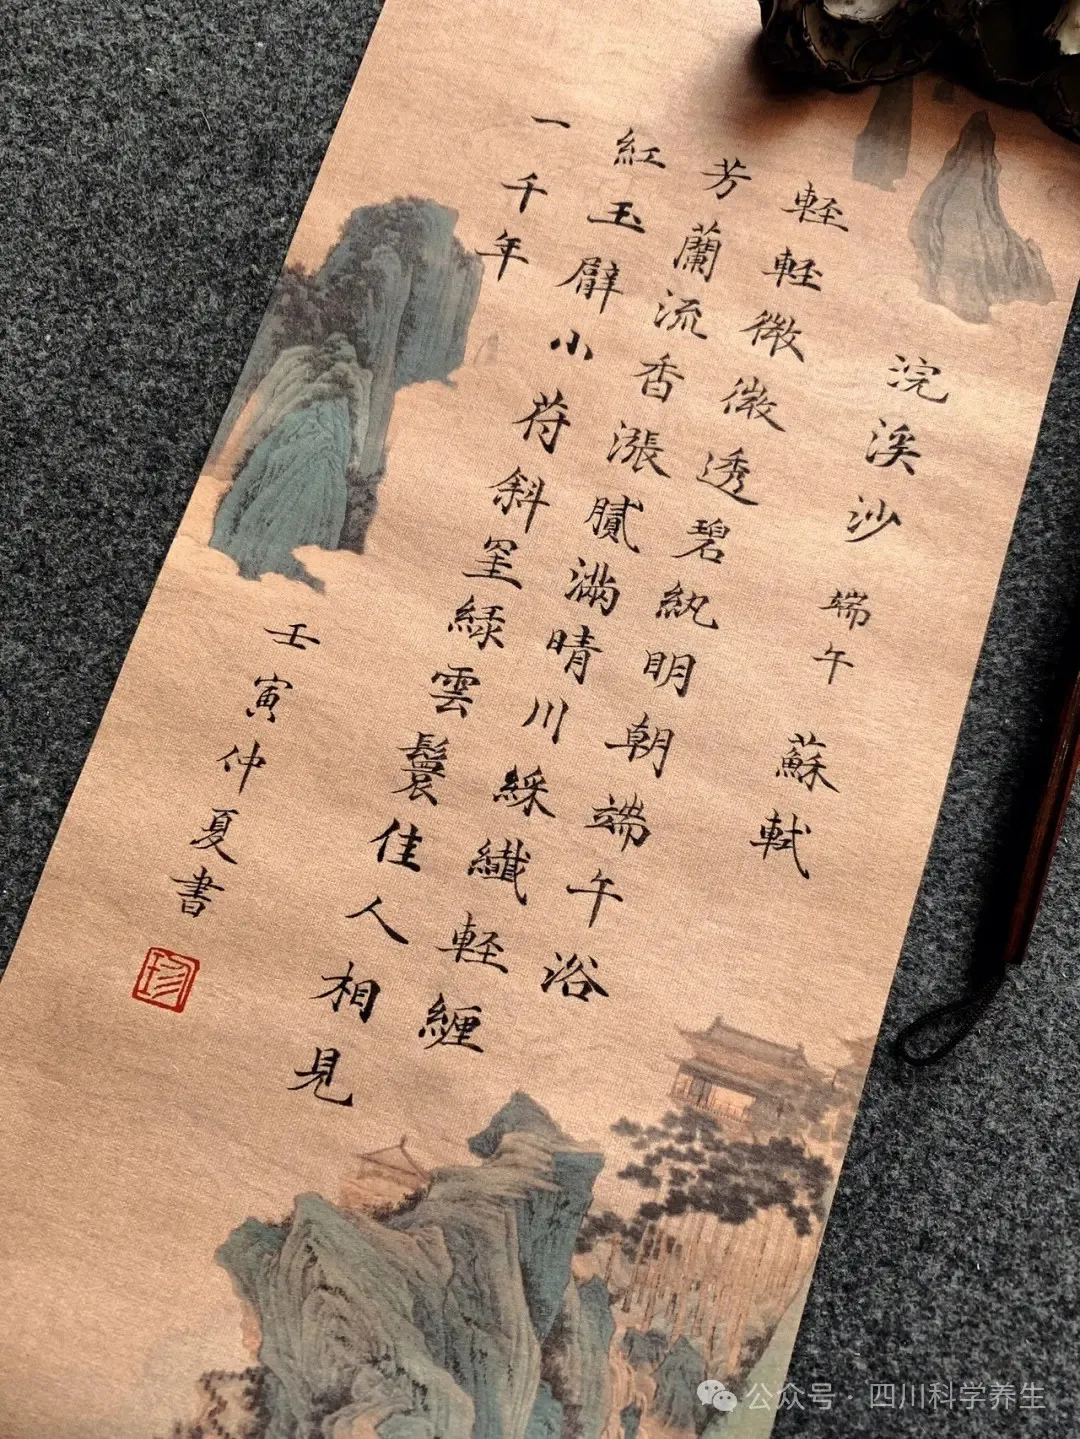 浣溪沙 端午 蘇軾
軽軽微微透碧紈明朝端午浴
芳蘭流香漲膩滿晴川綵纖軽纏
紅玉臂小苻斜罣緑雲鬟佳人相見
一千年
壬寅仲夏書
珍
公众号·四川科学养生